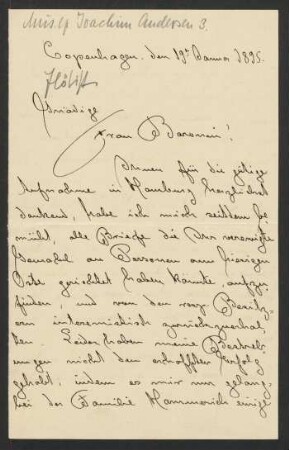 Mus. ep. Joachim Andersen 3.
Copenhagen, den 19t Januar 1895.
Flötist
Gnädige
Frau Baronin!
Ihnen für die gütige
Aufnahme in Hamburg herzlichst
dankend, habe ich mich seitdem be
müht, alle Briefe die Ihr verewigte
Gemahl an Personen am hiesigen
Orte gerichtet haben könnte, aufzu
finden, und von den resp. Besitz
ern interimistisch zurückzuerhal
ten. Leider haben meine Bestreb
ungen nicht den erhofften Erfolg
gehabt, indem es mir nur gelang
bei der Familie Hammerich einige